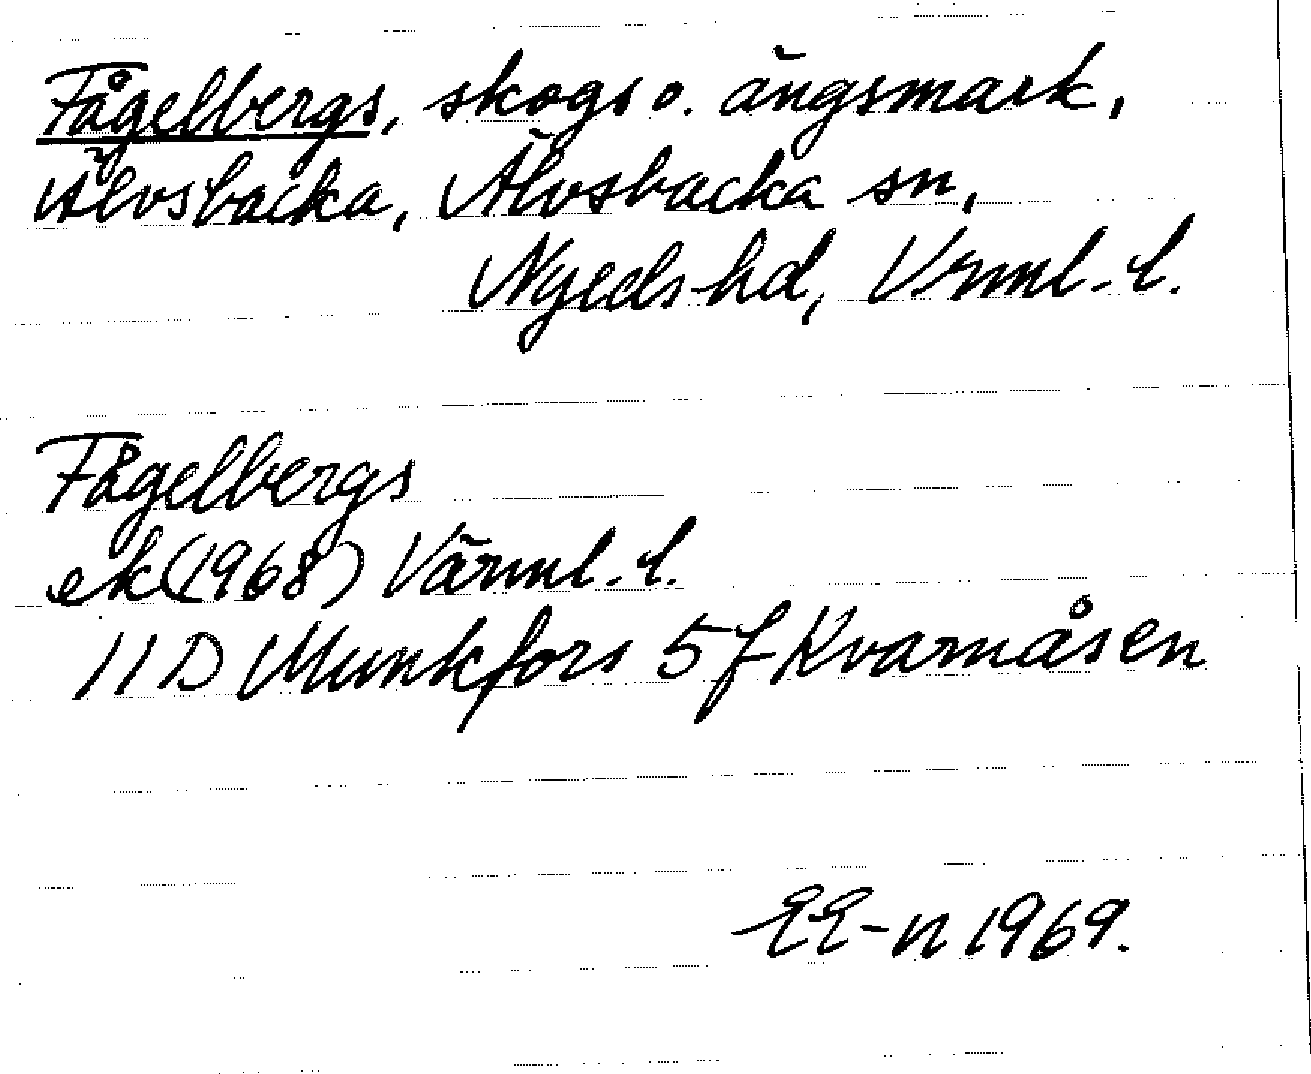 Fågelbergs, skogs o. ängsmark,
Älvsbacka, Älvsbacka sn,
Nyeds hd, Vrml. l.
Fågelbergs
ek (1968) Värml. l.
11 D Munkfors 5 f Kvarnåsen
EE-n 1969.